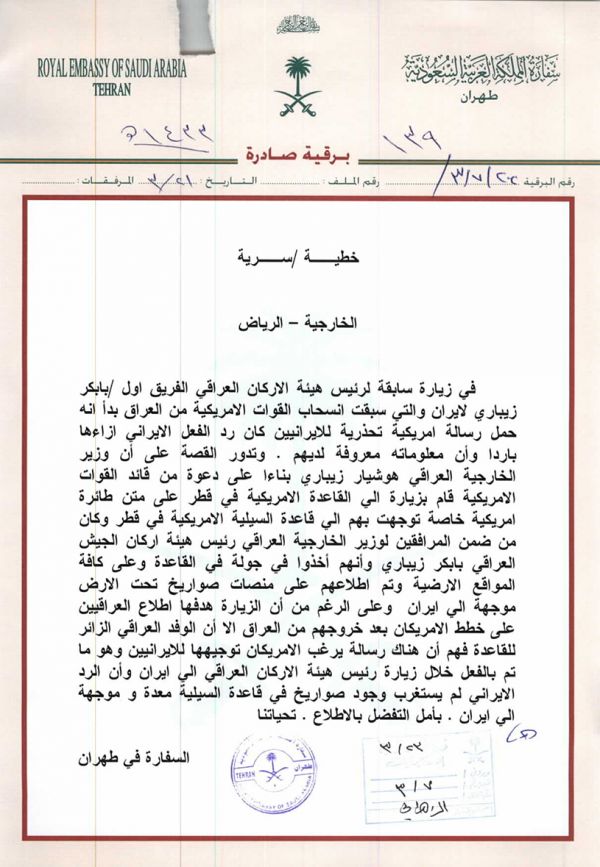 ROYAL EMBASSY OF SAUDI ARABIA
TEHRAN
سفارة المملكة العربية السعودية
طهران
١٤٣٣ هـ
١٣٩
برقية صادرة
رقم البرقية : ٣/٧/٢٢/ رقم الملف : التاريخ : ٣/٢١ المرفقات :
خطيـــة /ســـرية
الخارجية – الرياض
في زيارة سابقة لرئيس هيئة الاركان العراقي الفريق اول /بابكر
زيباري لايران والتي سبقت انسحاب القوات الامريكية من العراق بدأ انه
حمل رسالة امريكية تحذرية للايرانيين كان رد الفعل الايراني ازاءها
باردا وأن معلوماته معروفة لديهم . وتدور القصة على أن وزير
الخارجية العراقي هوشيار زيباري بناءا على دعوة من قائد القوات
الامريكية قام بزيارة الي القاعدة الامريكية في قطر على متن طائرة
امريكية خاصة توجهت بهم الي قاعدة السيلية الامريكية في قطر وكان
من ضمن المرافقين لوزير الخارجية العراقي رئيس هيئة اركان الجيش
العراقي بابكر زيباري وأنهم أخذوا في جولة في القاعدة وعلى كافة
المواقع الارضية وتم اطلاعهم على منصات صواريخ تحت الارض
موجهة الي ايران وعلى الرغم من أن الزيارة هدفها اطلاع العراقيين
على خطط الامريكان بعد خروجهم من العراق الا أن الوفد العراقي الزائر
للقاعدة فهم أن هناك رسالة يرغب الامريكان توجيهها للايرانيين وهو ما
تم بالفعل خلال زيارة رئيس هيئة الاركان العراقي الي ايران وأن الرد
الايراني لم يستغرب وجود صواريخ في قاعدة السيلية معدة و موجهة
الي ايران . بأمل التفضل بالاطلاع . تحياتنا
السفارة في طهران
TEHRAN
طهران
٣/٢٣
٣/٧